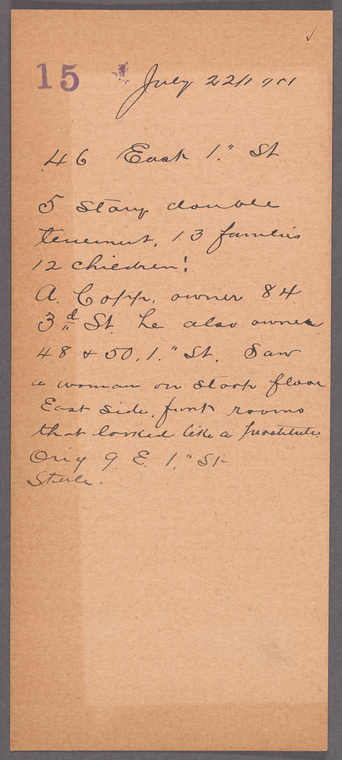 15
July 22/1901
46 East 1." St
5 story double
tenement, 13 families
12 children!
A. Copp. owner 84
3"d St. he also owner
48 & 50. 1." St. Saw
a woman on stoop floor
East side. front rooms
that looked like a prostitute
Orig 9. E. 1." St